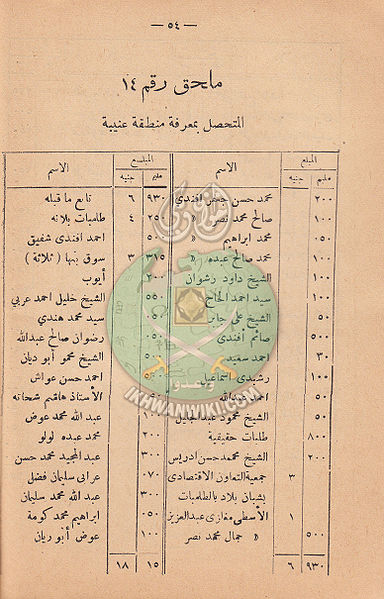 — ٥٤ —
ملحق رقم ١٤
المتحصل بمعرفة منطقة عنيبة
المبلغ الاسم
مليم جنيه
٢٠٠ محمد حسن حسن افندى
١٠٠ صالح محمد نصر »
٠٥٠ محمد ابراهيم »
١٠٠ محمد صالح عبده »
١٠٠ الشيخ داود رشوان
١٠٠ سيد احمد الحاج
٥٠ الشيخ على جابر
٥٠٠ صائم أفندى
٣٠ احمد سعيد
١٠٠ رشيدى اسماعيل
٥٠ احمد عبدالله
٥٠ الشيخ محمود عبد الجليل
٨٠٠ طلبات حقيقية
٢٠٠ الشيخ محمد حسن ادريس
٣ جمعية التعاون الاقتصادى
بشبان بلاد بالطلمبات
١ الأسطى مغازى عبد العزيز
٥٠٠ » جمال محمد نصر
٩٣٠ ٦
المبلغ الاسم
مليم جنيه
٩٣٠ ٦ تابع ما قبله
٢٥٠ ٤ طلمبات بلانه
احمد افندى شفيق
٣١٥ ٣ سوق بنها ( ثلاثة )
٢٠٠ أيوب
الشيخ خليل احمد عربي
سيد محمد هندي
رضوان صالح عبدالله
الشيخ محمو أبو ديان
احمد حسن عواش
الأستاذ هاشم شحاته
١٠٠ عبد الله محمد عوض
٢٠٠ محمد عبده لولو
٣٠٠ عبد المجيد محمد حسن
٠٧٠ عرابى سليمان فضل
٣٠٠ عبد الله محمد سليمان
٠٥٠ ابراهيم محمد كومة
١٠٠ عوض أبو ريان
١٥ ١٨
وأعدوا
IKHWANWIKI.COM